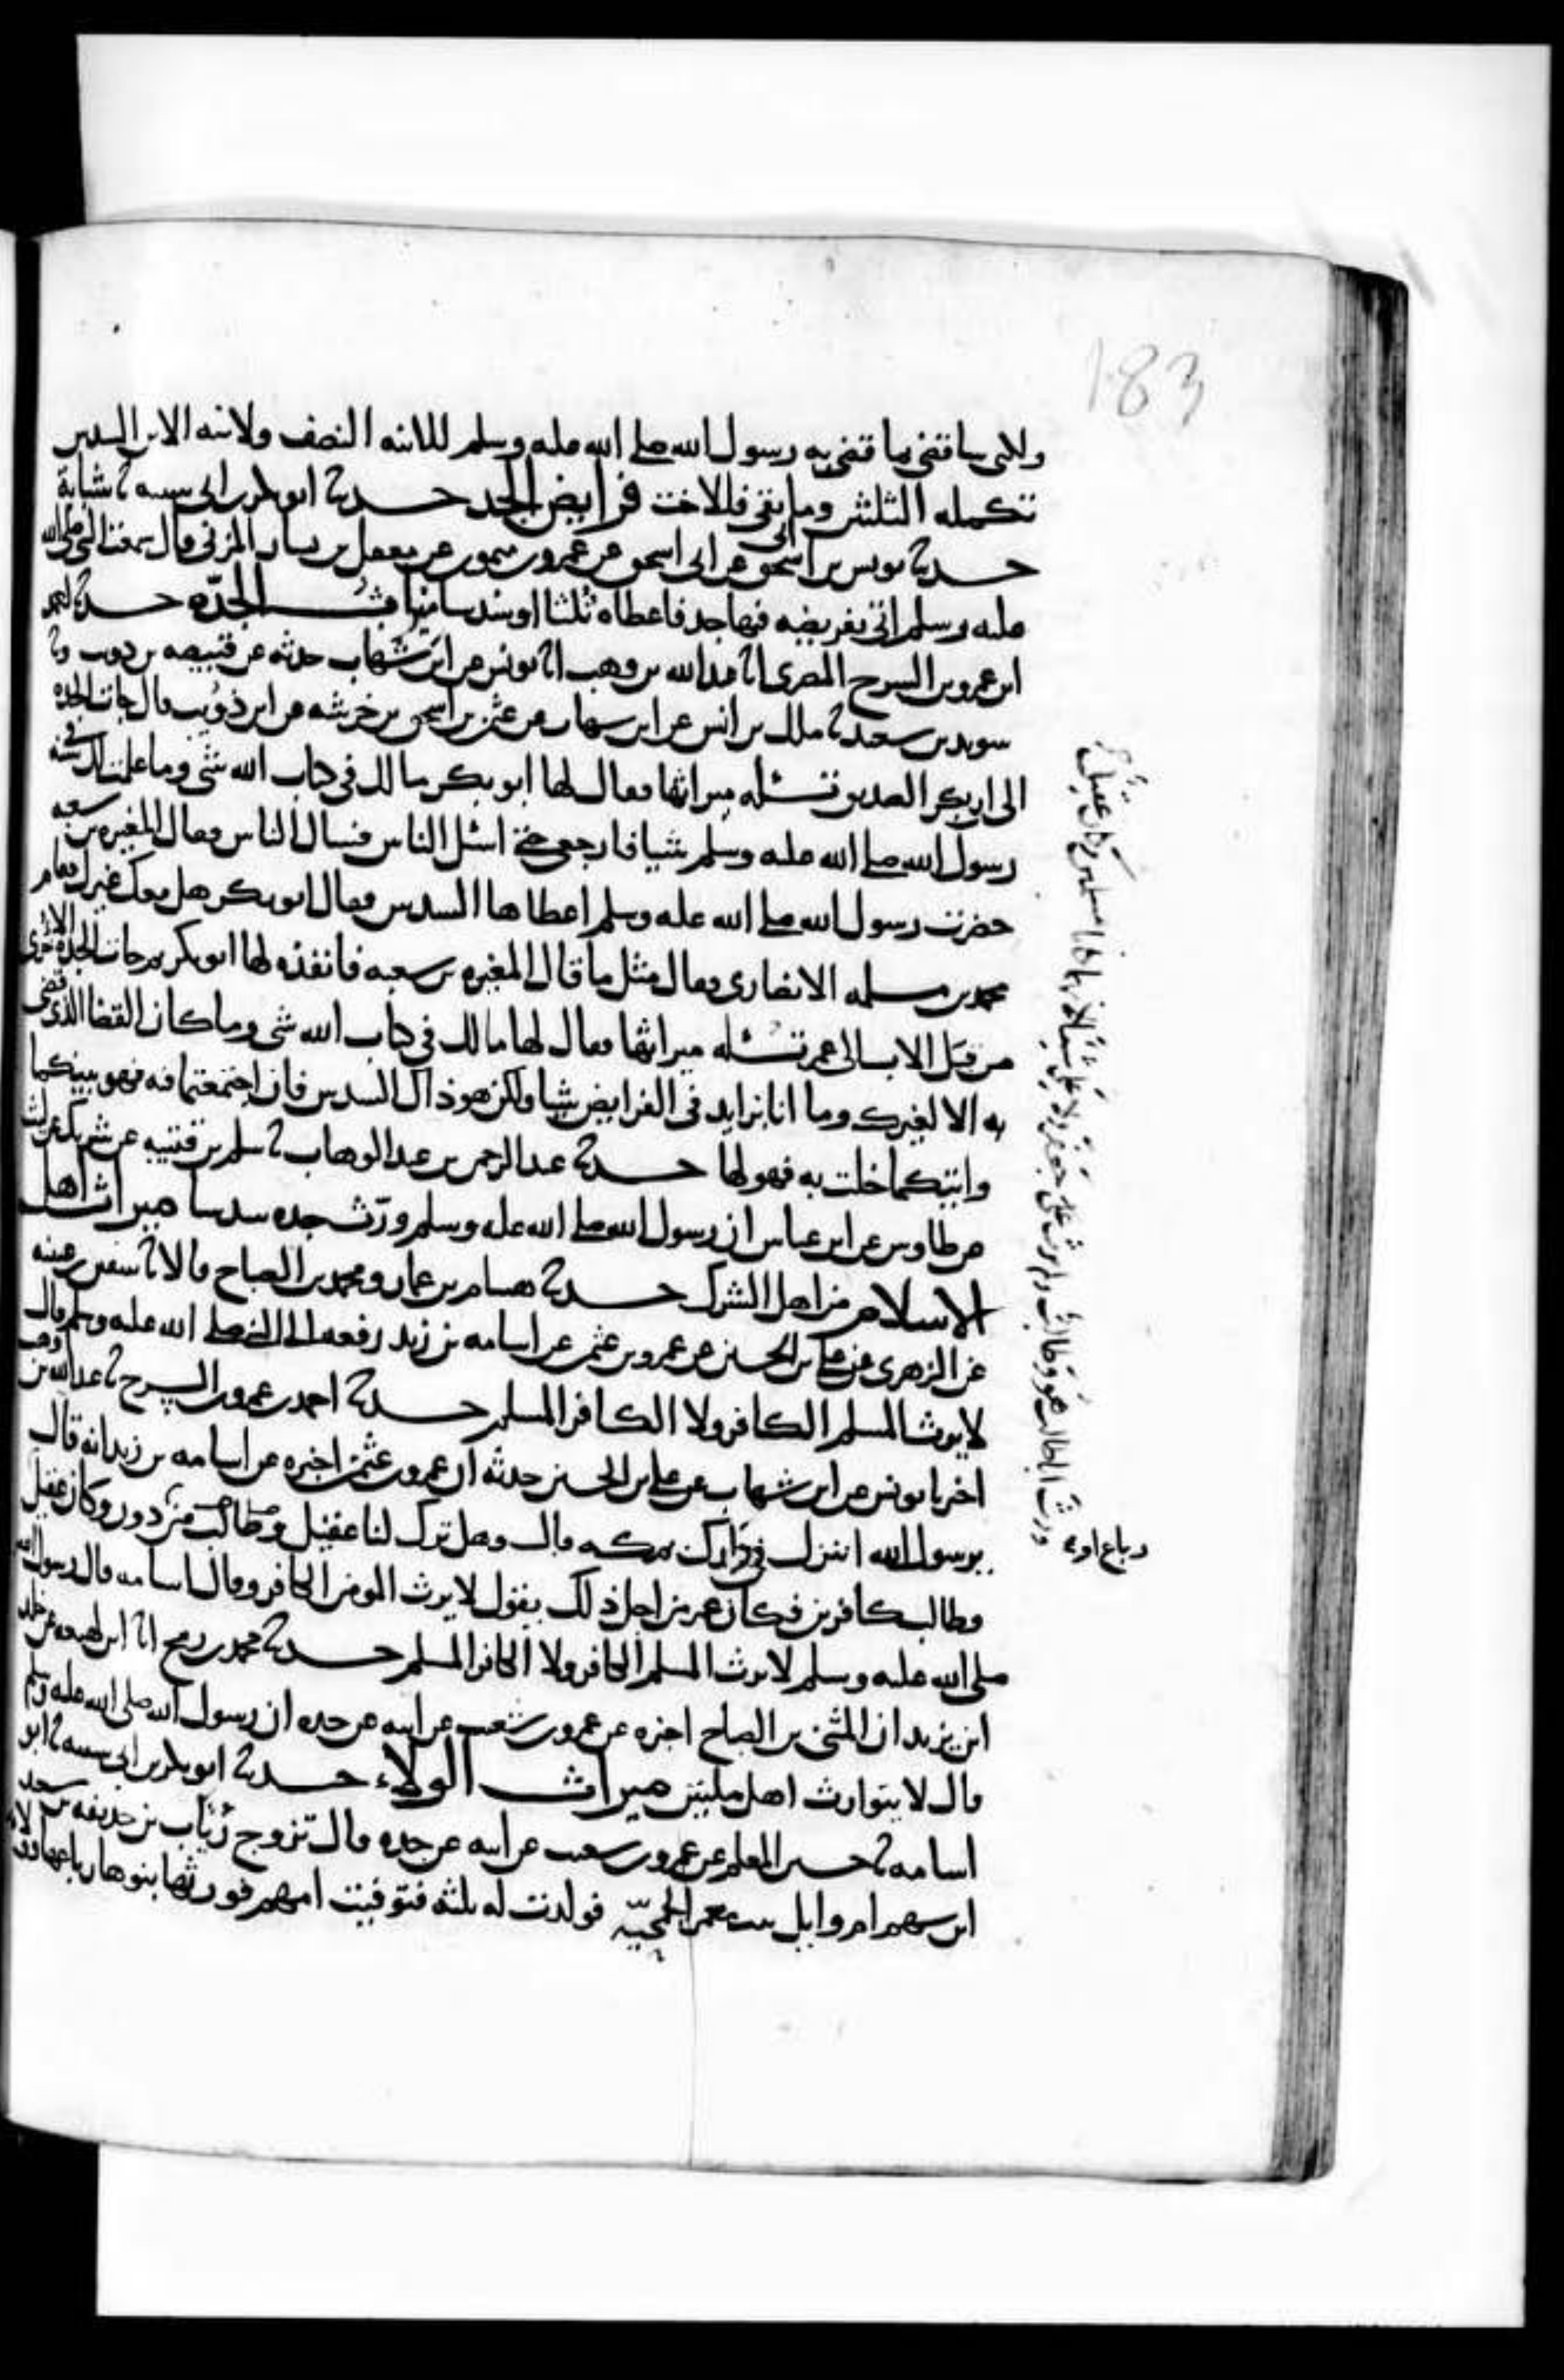 183
ولكنى ساقضى بما قضى به رسول الله صلى الله عليه وسلم للابنه النصف ولابنه الابن السدس
تكمله الثلثين وما بقى فللاخت فرايض الجد حدثنا ابو بكر بن ابى شيبه ثنا شبابة
حدثنا يونس بن ابى اسحق عن ابى اسحق عن عمرو بن ميمون عن معقل بن يسار المزنى قال سمعت النبى صلى الله
عليه وسلم اتى بفريضه فيها جد فاعطاه ثلثا او سدسا ميراث الجدّه حدثنا احمد
ابن عمرو بن السرح المصرى انا عبد الله بن وهب انا يونس عن ابن شهاب حدثه عن قبيصه بن ذويب وثنا
سويد بن سعيد ثنا ملك بن انس عن ابن شهاب عن عثمن بن اسحق بن خرشه عن ابن ذؤيب قال جات الجده
الى ابى بكر الصديق تسئله ميراثها فقال لها ابو بكر مالك فى كتاب الله شى وما علمت لك فى سنه
رسول الله صلى الله عليه وسلم شيا فارجعى حتى اسئل الناس فسال الناس فقال المغيره بن شعبه
حضرت رسول الله صلى الله عليه وسلم اعطاها السدس فقال ابو بكر هل معك غيرك فقام
محمد بن مسلمه الانصارى فقال مثل ما قال المغيره بن شعبه فانفذه لها ابو بكر ثم جات الجده الاخرى
من قبل الاب الى عمر تسئله ميراثها فقال لها مالك فى كتاب الله شى وما كان القضا الذى قضى
به الا لغيرك وما انا بزايد فى الفرايض شيا ولكن هو ذاك السدس فان اجتمعتما فيه فهو بينكما
وايتكما خلت به فهو لها حدثنا عبد الرحمن بن عبد الوهاب ثنا سلم بن قتيبه عن شريك عن ليث
عن طاوس عن ابن عباس ان رسول الله صلى الله عليه وسلم ورّث جده سدسا ميراث اهل
الاسلام من اهل الشرك حدثنا هشام بن عمار ومحمد بن الصباح قالا ثنا سفين بن عيينه
عن الزهرى عن على بن الحسين عن عمرو بن عثمن عن اسامه بن زيد رفعه الى النبى صلى الله عليه وسلم قال
لا يرث المسلم الكافر ولا الكافر المسلم حدثنا احمد بن عمرو بن السرح ثنا عبد الله بن وهب
اخبرنا يونس عن ابن شهاب عن على بن الحسين حدثه ان عمرو بن عثمن اخبره عن اسامه بن زيد انه قال
يرسول الله اتنزل فى دارك بمكه قال وهل ترك لنا عقيل من دور وكان عقيل
وطالب كافرين فكان عمر من اجل ذلك يقول لا يرث المومن الكافر وقال اسامه قال رسول الله
صلى الله عليه وسلم لا يرث المسلم الكافر ولا الكافر المسلم حدثنا محمد بن رمح انا ابن لهيعه عن خلد
ابن يزيد ان المثنى بن الصباح اخبره عن عمرو بن شعيب عن ابيه عن جده ان رسول الله صلى الله عليه وسلم
قال لا يتوارث اهل ملتين ميراث الولاء حدثنا ابو بكر بن ابى شيبه ثنا ابو
اسامه ثنا حسين المعلم عن عمرو بن شعيب عن ابيه عن جده قال تزوج رئاب بن حذيفه بن سعيد
ابن سهم ام وايل بنت معمر الجمحيّه فولدت له ثلثه فتوفيت امهم فورثها بنوها رباعها وولاء
رباع او
ورث ابا طالب هو وطالب ولم يرث على جعفر ولا على شيئا لانهما كانا مسلمين وكان عقيل